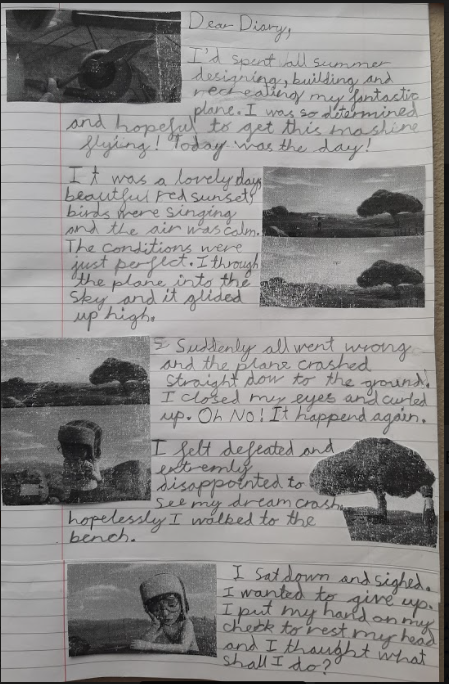 Dear Diary,
I'd spent all summer
designing, building and
recreating my fantastic
plane. I was so determined
and hopeful to get this mashine
flying! Today was the day!
It was a lovely day,
beautiful red sunset,
birds were singing
and the air was calm.
The conditions were
just perfect. I through
the plane into the
sky and it glided
up high.
Suddenly all went wrong
and the plane crashed
straight dow to the ground.
I closed my eyes and curled
up. Oh No! It happend again.
I felt defeated and
extremly
disappointed to
see my dream crash,
hopelessly I walked to the
bench.
I sat down and sighed.
I wanted to give up.
I put my hand on my
cheek to rest my head
and I thought what
shall I do?